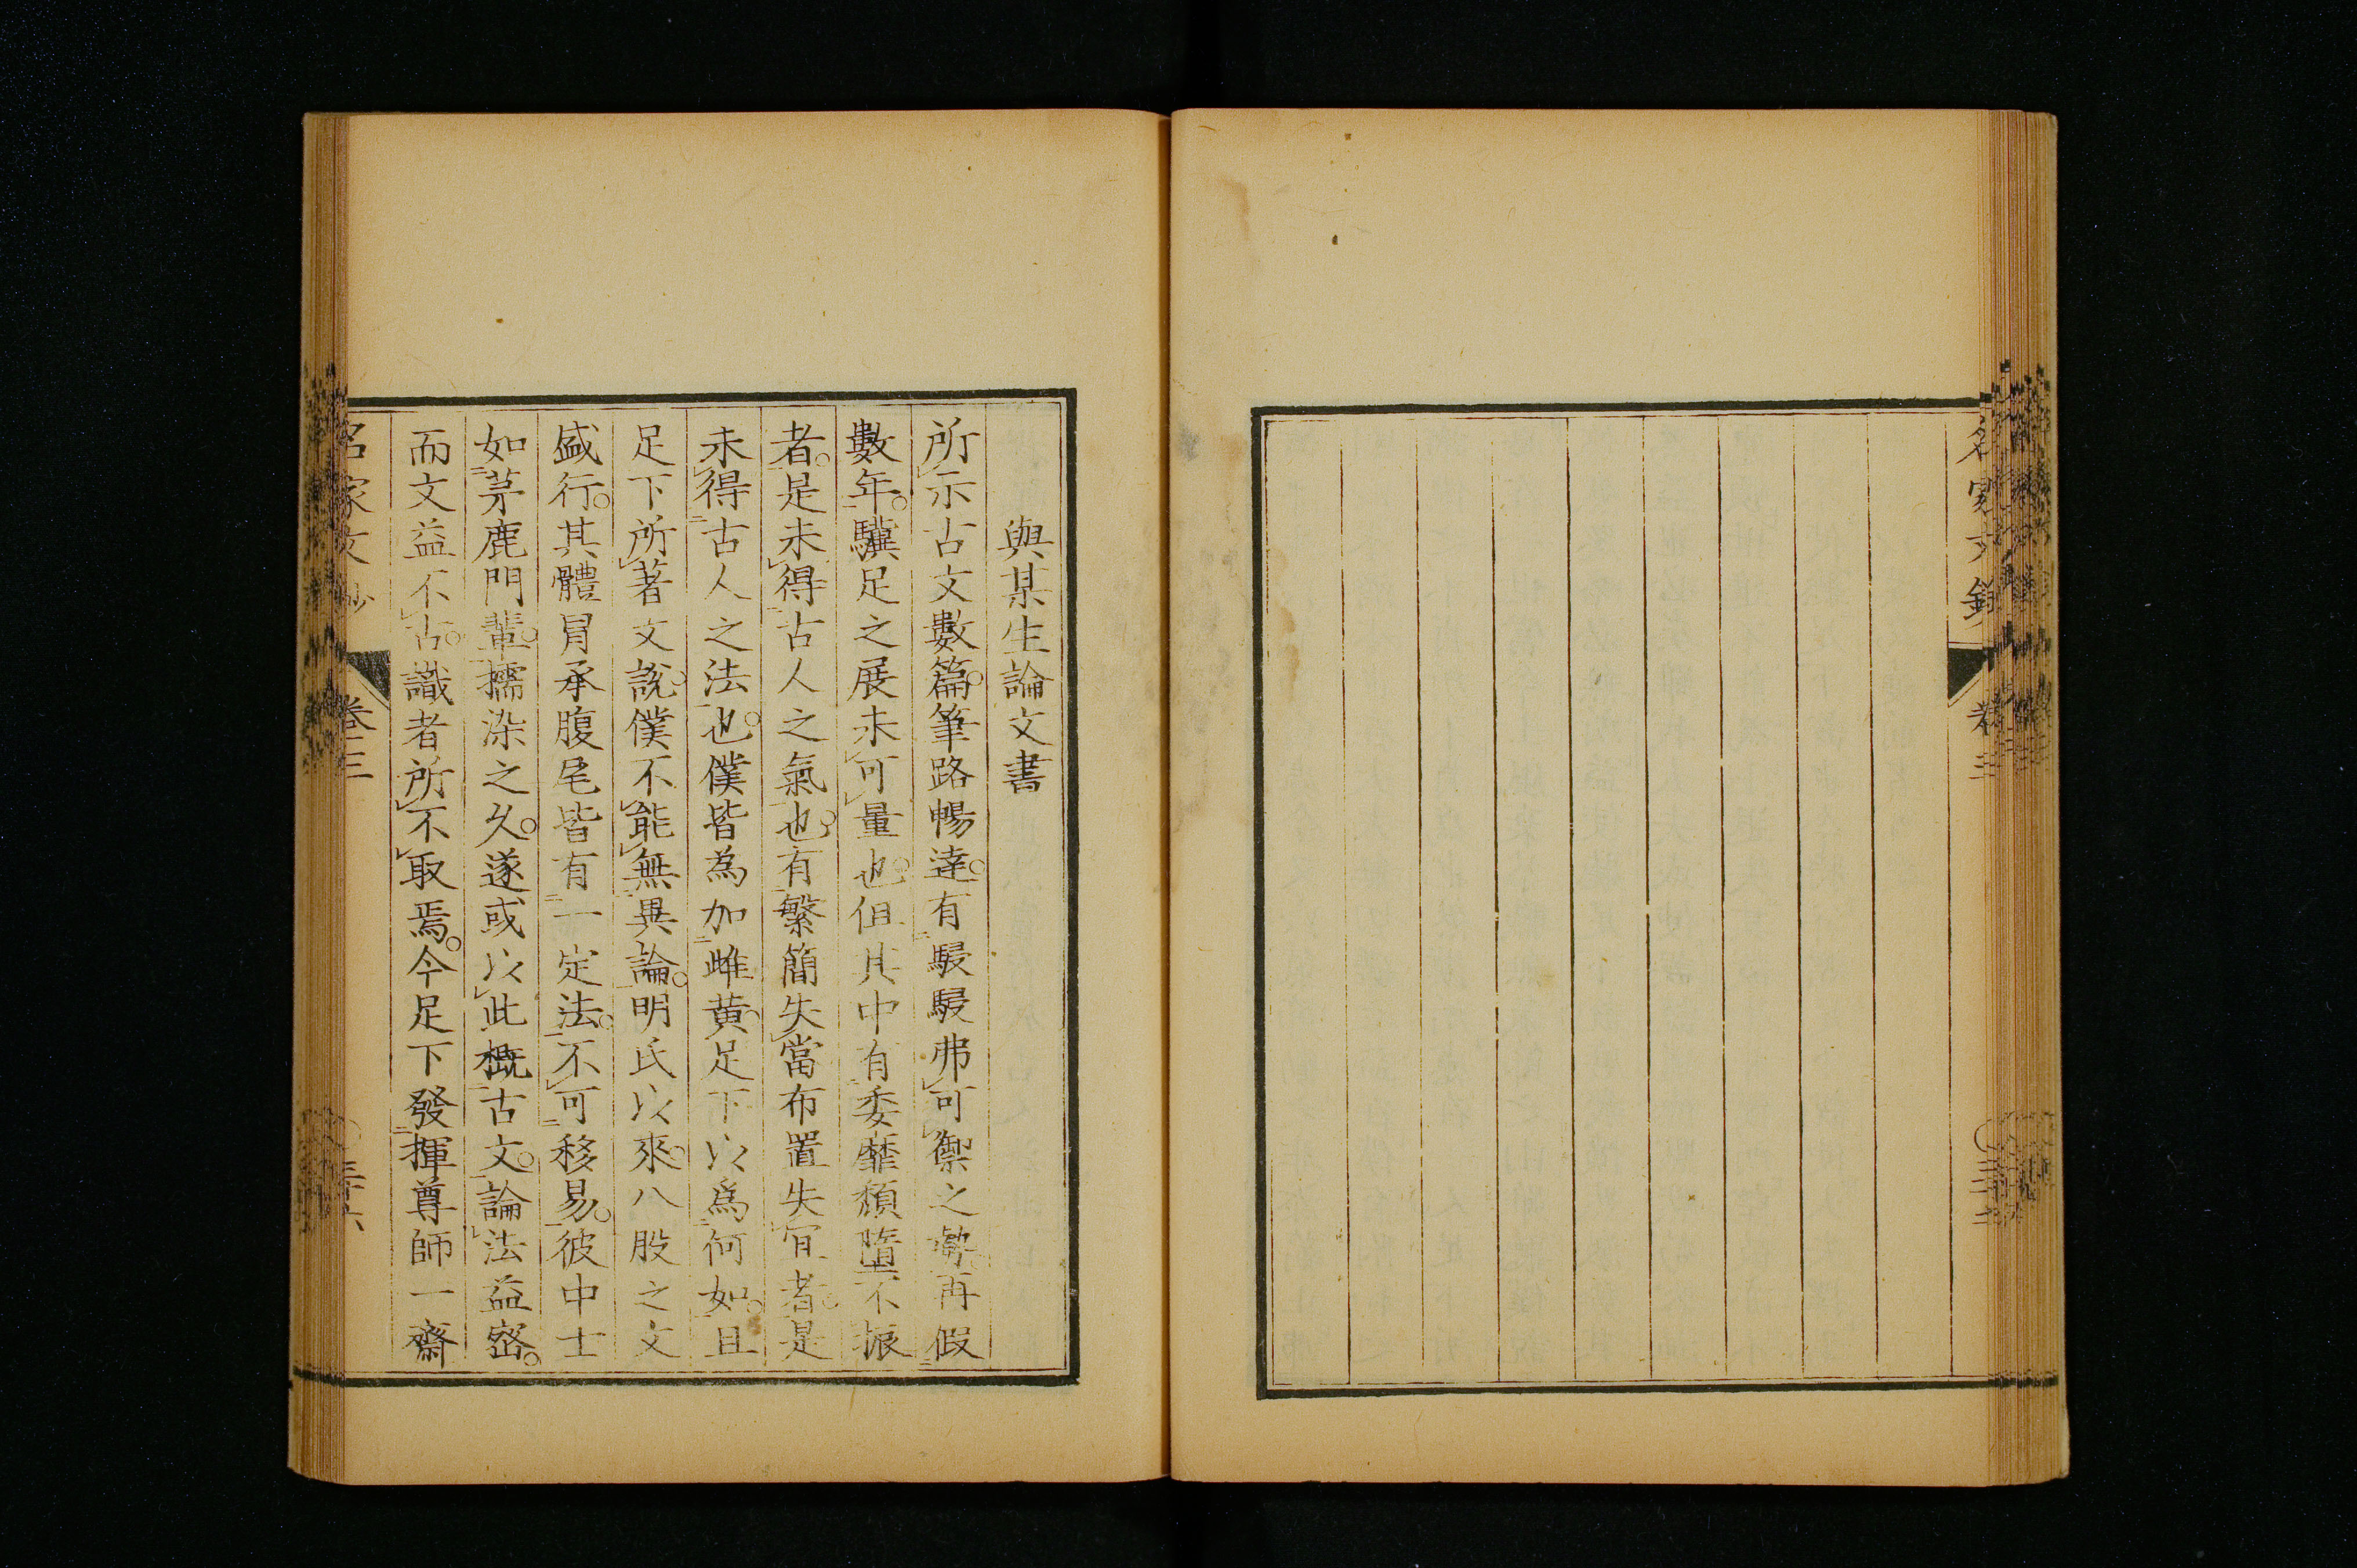 名家文鈔 卷三
與某生論文書
所示古文數篇。筆路暢達。有駸駸弗可禦之勢。再假
數年。驥足之展未可量也。但其中有委靡頹墮不振
者。是未得古人之氣也。有繁簡失當布置失宜者。是
未得古人之法也。僕皆為加雌黄。足下以爲何如。且
足下所著文說。僕不能無異論。明氏以來。八股之文
盛行。其體冐承腹尾皆有一定法。不可移易。彼中士
如茅鹿門輩。擩染之久。遂或以此概古文。論法益密。
而文益不古。識者所不取焉。今足下發揮尊師一齋
名家文鈔 卷三